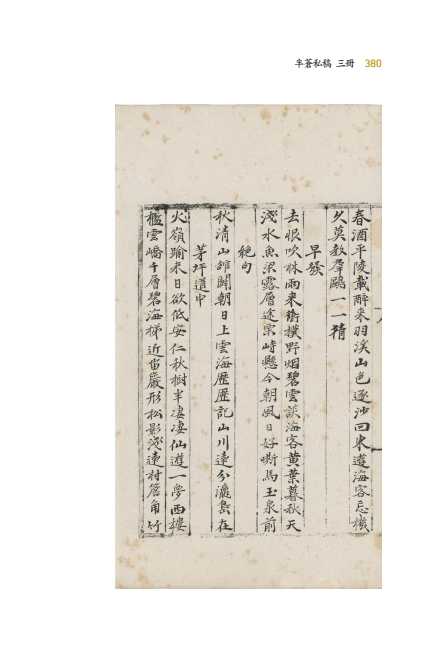 半蒼私稿 三冊 380
春酒平陵載醉來羽溪山色逐沙回東遊海客忘機
久莫教羣鷗一一猜
早發
去恨吹林雨來衝撲野烟碧雲談海客黃葉暮秋天
淺水魚梁露層途栗峙懸今朝風日好嘶馬玉泉前
絶句
秋清山館闢朝日上雲海歷歷記山川遠分瀛島在
茅坪道中
火嶺踰來日欲低安仁秋樹半凄凄仙遊一夢西樓
檻雲嶠千層碧海梯近峀巖形松影逐遠村簷角竹